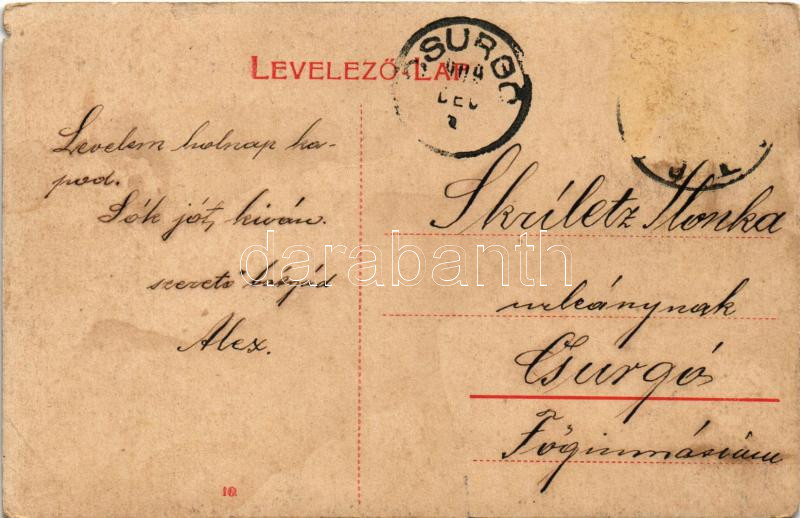 LEVELEZŐ-LAP
CSURGÓ
DEC
Levelem holnap ka-
pod.
Sók jót, kiván.
szerető
Alex.
Skriletz Ilonka
urleánynak
Csurgó
Főgimnásium
darabanth
10